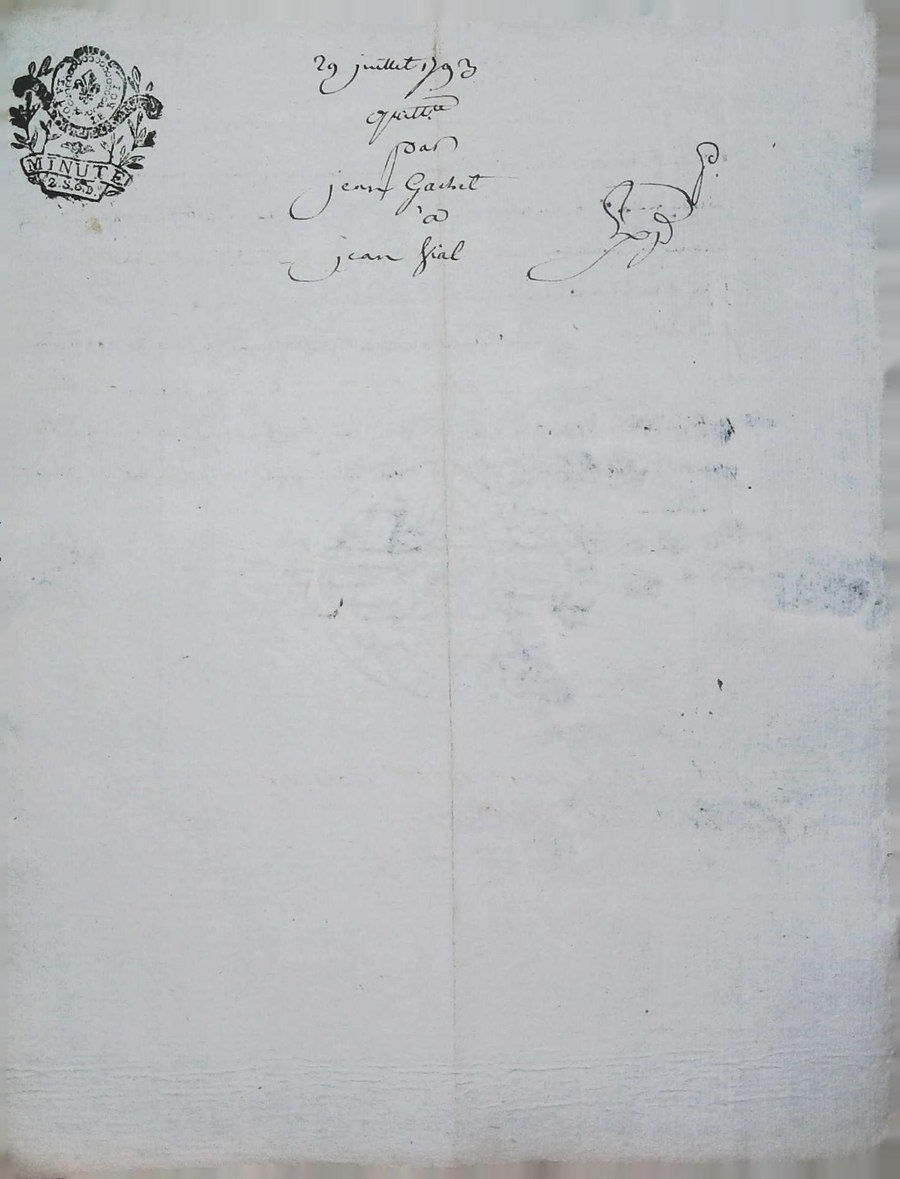 MINUTE
2.S.6.D.
29 juillet 1793
quitt.ce
par
jean Gachet
à
jean Vial